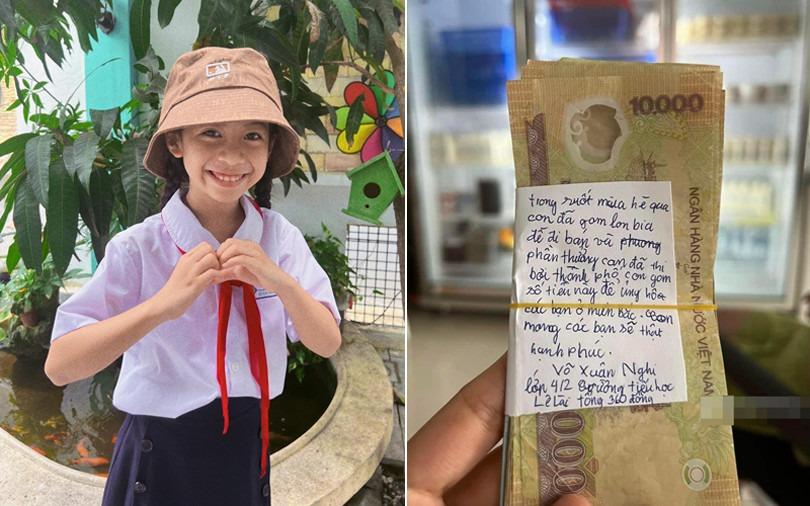 10.000
NGÂN HÀNG NHÀ NƯỚC VIỆT NAM
trong suốt mùa hè qua
con đã gom lon bia
để đi bán và phương
phần thưởng con đã thi
bơi thành phố con gom
số tiền này để ủng hộ
các bạn ở miền bắc. Con
mong các bạn sẽ thật
hạnh phúc.
Võ Xuân Nghi
lớp 4/2 trường tiểu học
Lê Lai tổng 360 đồng
000